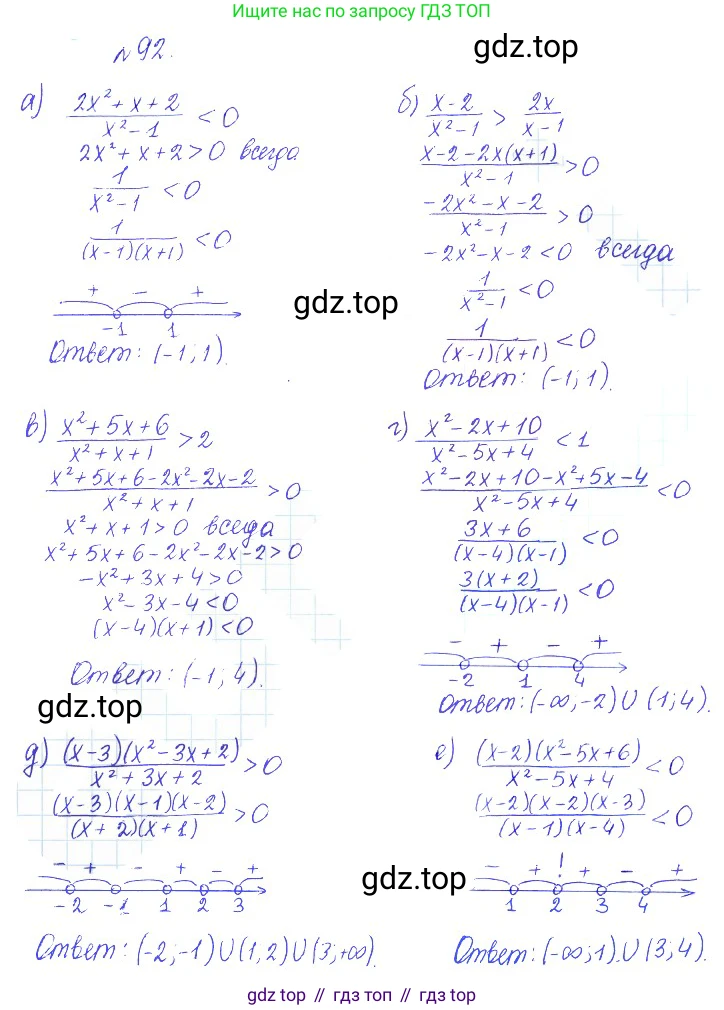 Ищите нас по запросу ГДЗ ТОП
№92.
gdz.top
а) (2x²+x+2)/(x²-1) < 0
2x²+x+2>0 всегда
1/(x²-1) < 0
1/((x-1)(x+1)) < 0
+ - +
-1 1
Ответ: (-1;1).
б) (x-2)/(x²-1) > 2x/(x-1)
(x-2-2x(x+1))/(x²-1) >0
(-2x²-x-2)/(x²-1) > 0
-2x²-x-2<0 всегда
1/(x²-1) <0
1/((x-1)(x+1)) <0
Ответ: (-1;1).
gdz.top
в) (x²+5x+6)/(x²+x+1) >2
(x²+5x+6-2x²-2x-2)/(x²+x+1) >0
x²+x+1>0 всегда
x²+5x+6-2x²-2x-2>0
-x²+3x+4>0
x²-3x-4<0
(x-4)(x+1)<0
Ответ: (-1;4).
г) (x²-2x+10)/(x²-5x+4) <1
(x²-2x+10-x²+5x-4)/(x²-5x+4) <0
(3x+6)/((x-4)(x-1)) <0
3(x+2)/((x-4)(x-1)) <0
- + - +
-2 1 4
Ответ: (-∞;-2)∪(1;4).
gdz.top
д) (x-3)(x²-3x+2)/(x²+3x+2) >0
(x-3)(x-1)(x-2)/((x+2)(x+1)) >0
- + - + - +
-2 -1 1 2 3
Ответ: (-2;-1)∪(1,2)∪(3;+∞).
е) (x-2)(x²-5x+6)/(x²-5x+4) <0
(x-2)(x-2)(x-3)/((x-1)(x-4)) <0
gdz.top
- + ! + - +
1 2 3 4
Ответ: (-∞;1)∪(3;4).
gdz top // гдз топ // gdz top